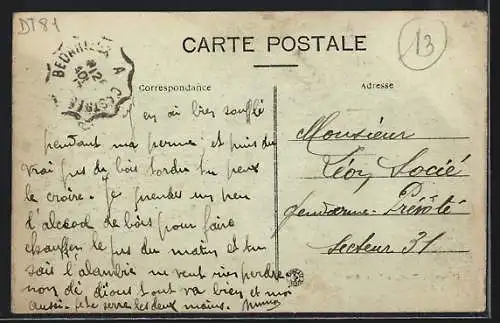 DT81
13
BEDARIEUX A CASTRES
CARTE POSTALE
Correspondance
Adresse
j'en ai bien soufflé
pendant ma perme et puis du
vrai jus de bois tordu tu peux
le croire. Je prendrai un peu
d'alcool de bois pour faire
chauffer le jus du matin et tu
sais l'alambic ne veut rien perdre
non di dious tout va bien et moi
aussi. je te serre les deux mains.
Monsieur
Léon Socié
Gendarme-Prévôté
Secteur 31